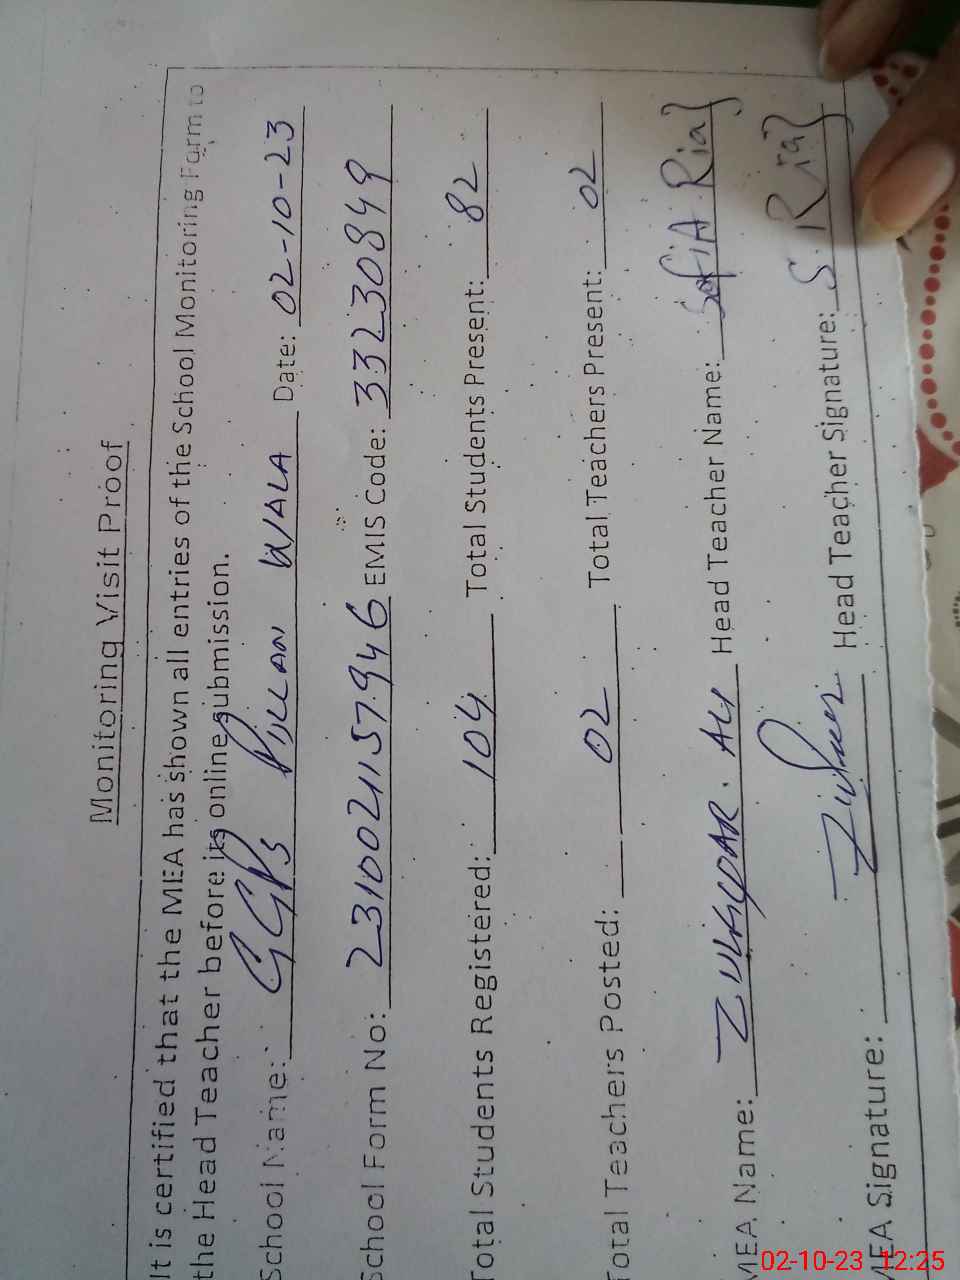 Monitoring Visit Proof
It is certified that the MEA has shown all entries of the School Monitoring Form to
the Head Teacher before its online submission.
School Name: GGPS WALA Date: 02-10-23
School Form No: 2310021157946 EMIS Code: 33230849
Total Students Registered: 104 Total Students Present: 82
Total Teachers Posted: 02 Total Teachers Present: 02
MEA Name: ZULFIQAR. ALI Head Teacher Name: Sofia Riaz
MEA Signature: Head Teacher Signature: S. Riaz
02-10-23 12:25